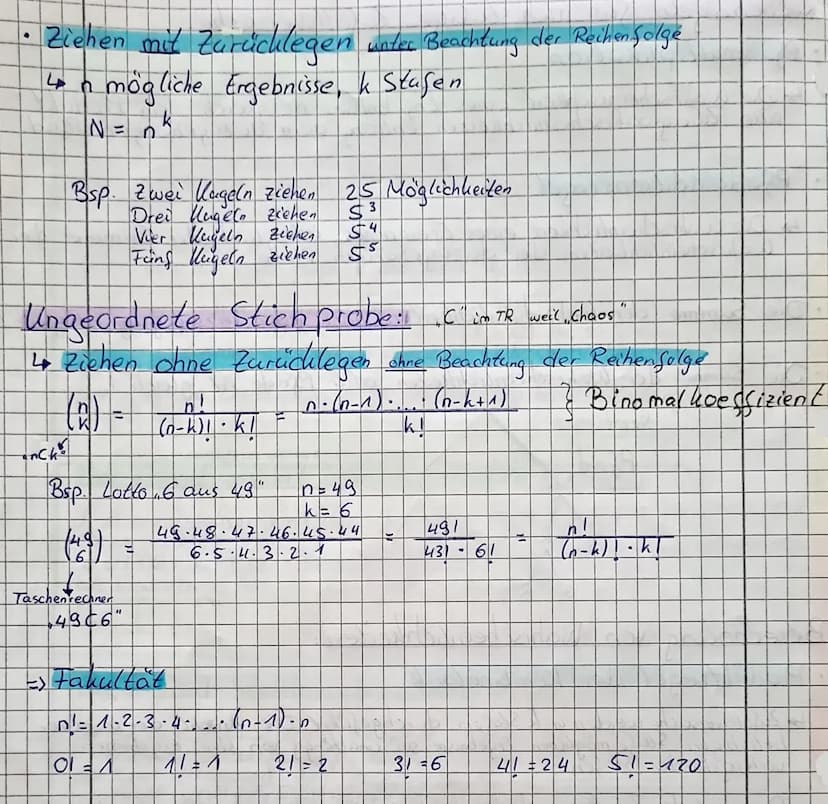 • Ziehen mit Zurücklegen unter Beachtung der Reihenfolge
↳ n mögliche Ergebnisse, k Stufen
N = n^k
Bsp. Zwei Kugeln ziehen 25 Möglichkeiten
Drei Kugeln ziehen 5^3
Vier Kugeln ziehen 5^4
Fünf Kugeln ziehen 5^5
Ungeordnete Stichprobe: „C" im TR weil „Chaos"
↳ Ziehen ohne Zurücklegen ohne Beachtung der Reihenfolge
(n k) = n! / ((n-k)! · k!) = n·(n-1)·...·(n-k+1) / k! } Binomalkoeffizient
„nCk"
Bsp. Lotto „6 aus 49" n=49
k=6
(49 6) = 49·48·47·46·45·44 / 6·5·4·3·2·1 = 49! / 43! · 6! = n! / (n-k)! · k!
Taschenrechner
„49C6"
=> Fakultät
n! = 1·2·3·4·...·(n-1)·n
0! = 1 1! = 1 2! = 2 3! = 6 4! = 24 5! = 120